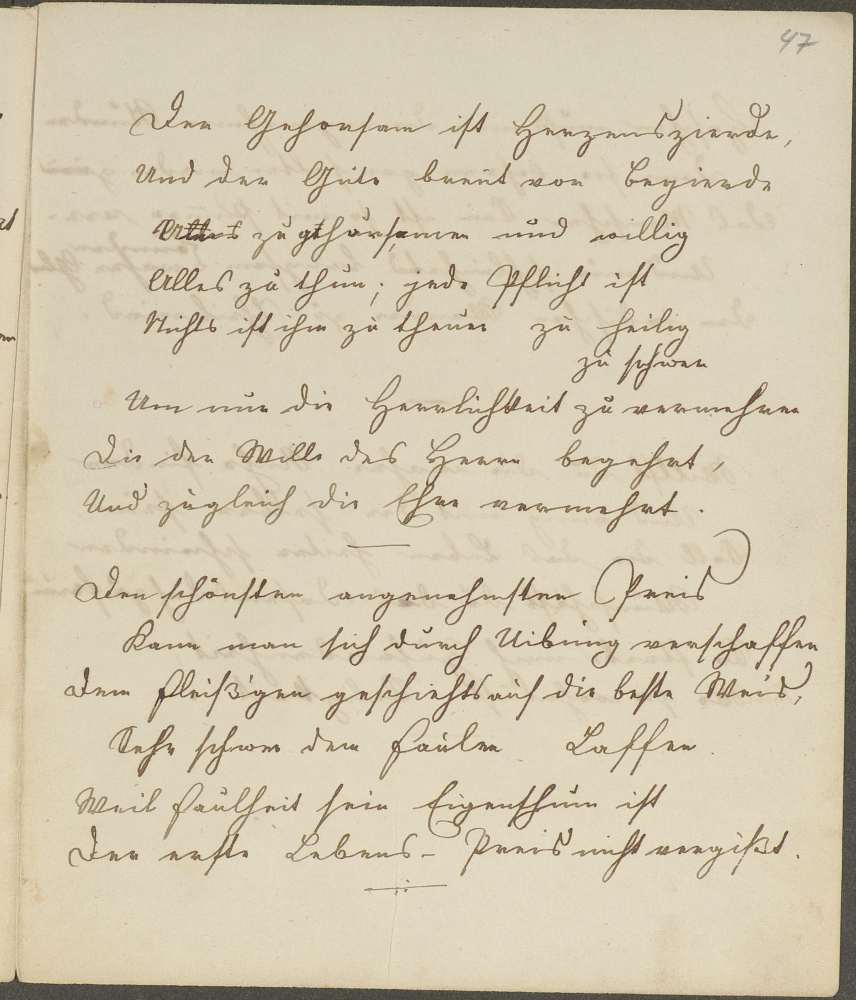 47
Der Gehorsam ist Herzenszierde,
Und der Gute brent vor Begierde
zu gehorsamen und willig
Alles zu thun; jede Pflicht ist
Nichts ist ihm zu theuer zu heilig
zu schwer
Um nur die Herrlichkeit zu vermehren
Die der Wille des Herrn begehrt,
Und zugleich die Ehre vermehrt.
Den schönsten angenehmsten Preis
Kann man sich durch Uibung verschaffen
Dem fleiß'gen geschiehts auf die beste Weis,
Sehr schwer dem faulen Laffen.
Weil faulheit sein Eigenthum ist
Der erste Lebens-Preis nicht vergißt.